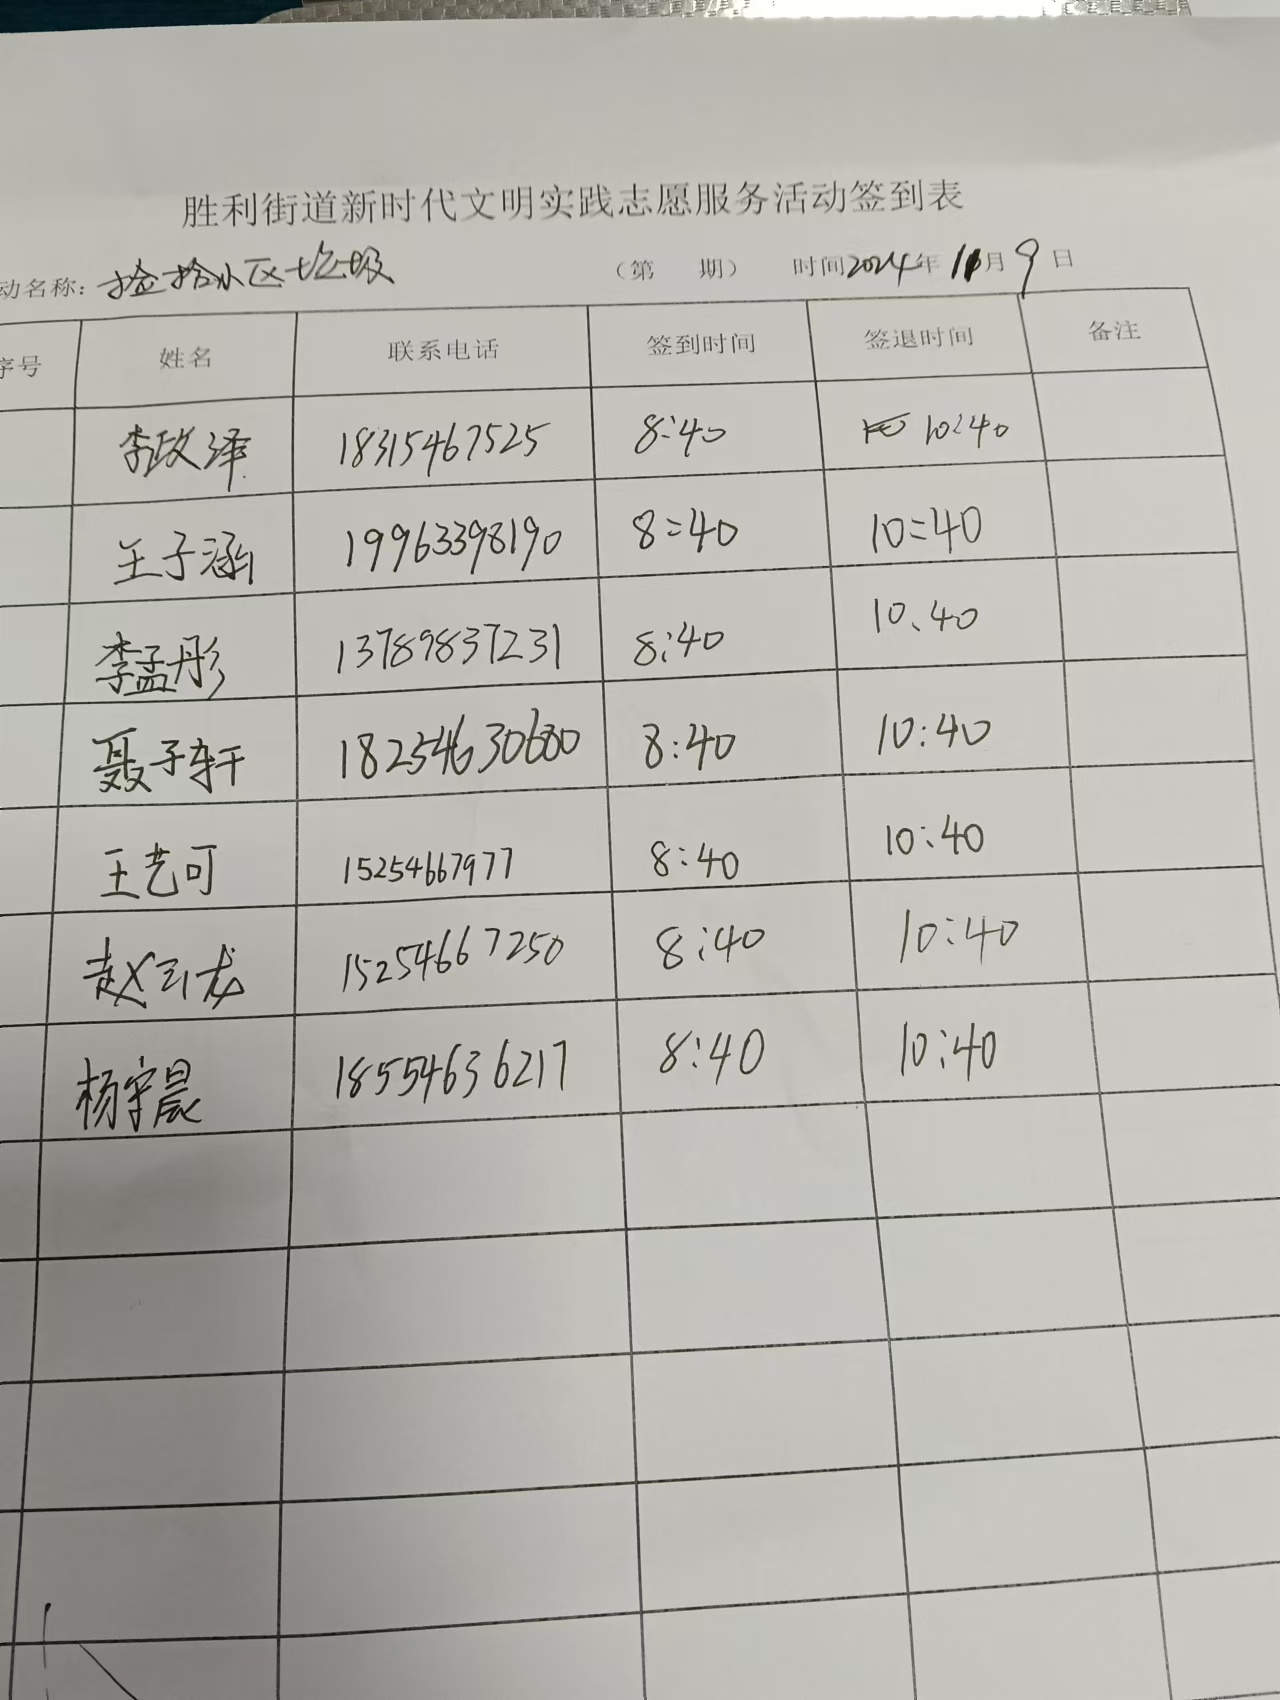 胜利街道新时代文明实践志愿服务活动签到表
动名称：捡拾小区垃圾 （第 期） 时间2024年11月9日
序号 姓名 联系电话 签到时间 签退时间 备注
李政泽 18315467525 8:40 10:40
王子涵 19963398190 8:40 10:40
李孟彤 13789837231 8:40 10.40
聂子轩 18254630680 8:40 10:40
王艺可 15254667977 8:40 10:40
赵云龙 15254667250 8:40 10:40
杨宇晨 18554636217 8:40 10:40